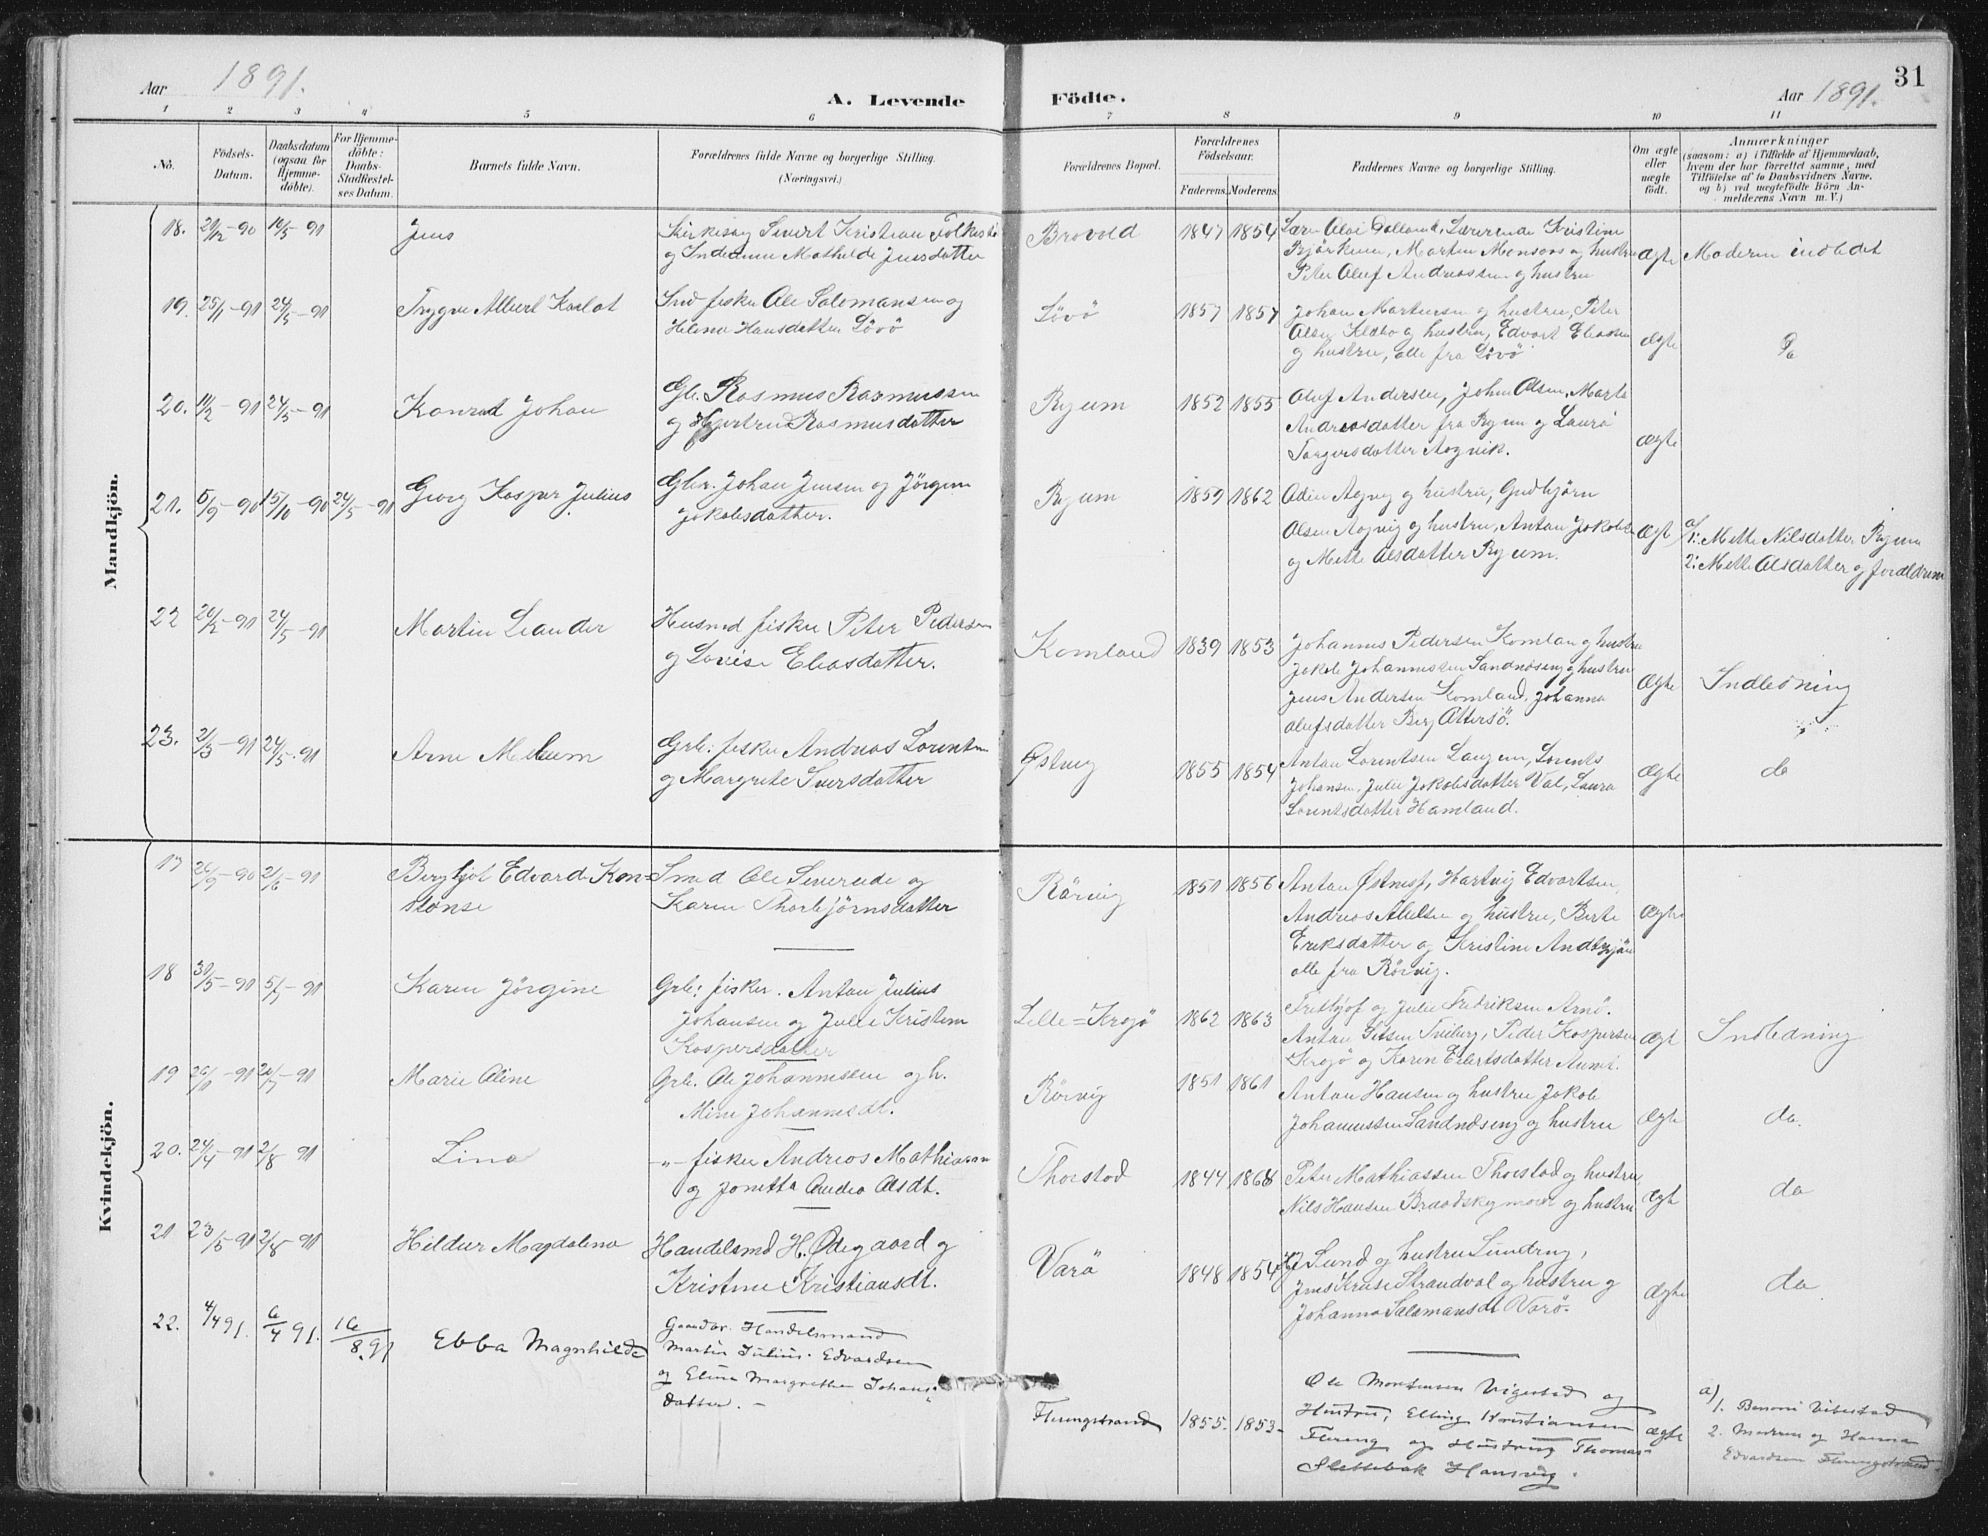 Aar 1891.
A. Levende Födte.
Aar 1891.
31
1 2 3 4 5 6 7 8 9 10 11
No.
Födsels-Datum.
Daabsdatum (ogsaa for Hjemme-döbte).
For Hjemme-döbte: Daabs-Stadfæstel-ses Datum.
Barnets fulde Navn.
Forældrenes fulde Navne og borgerlige Stilling.
(Næringsvei.)
Forældrenes Bopæl.
Forældrenes Födselsaar.
Faderens. Moderens.
Faddernes Navne og borgerlige Stilling.
Om ægte eller uægte födt.
Anmærkninger
(saasom: a) i Tilfælde af Hjemmedaab,
hvem der har forrettet samme, med
Tilföielse af to Daabsvidners Navne.
og b) ved uægtefödte Börn An-
melderens Navn m. V.)
Mandkjön.
18. 16/5-91
Jens
Kirkesang Sivert Kristian
og Indianna Mathilde Jensdatter
Brovold
1847 1854
Kristine
Martin Monsøn og hustru
Peter Oluf Andreassen og hustru
ægte
Moderen indledet
19. 25/1-91 24/5-91
Trygve Albert Karlot
Ind. fisker Ole Salomonsen og
Helena Hansdatter Lövö
Lövö
1857 1857
Johan Martinsen og hustru, Peter
Olsen og hustru, Edvart Eliasen
og hustru, alle fra Lövö
ægte
Do
20. 11/2-91 24/5-91
Konrad Johan
Gb. Rasmus Rasmussen
og Rasmusdatter
Ryum
1852 1855
Oluf Andersen, John Olsen, Marta
Andreasdatter fra Ryum og Laura
Torgersdatter Aagvik.
ægte
21. 5/9-90 15/10-90 24/5-91
Georg Kasper Julius
Gbr. Johan Jensen og Jörgine
Jakobsdatter.
Ryum
1859 1862
Odin Aagvig og hustru, Gudbjörn
Olsen Aagvig og hustru, Antan
og Mette Olsdatter Ryum.
ægt
a/ 1: Mette Nilsdatter Ryum
2: Mette Olsdatter og forældrene
22 24/5-91
Martin Leander
Husmd fisker Peter Pedersen
og Lovise Eliasdatter.
Komland
1839 1853
Johannes Pedersen Komlan og hustru
Jakob Johannessen Sandnæseng og hustru
Jens Andersen Komland, Johanna
Olufsdatter Berg Ottersö.
ægte
Indledning
23. 2/3-91 24/5-91
Arne Melum
Grb. fisker Andreas Lorentsen
og Margrete Siversdatter
Østvig
1855 1854
Antan Lorentsen Laugen, Lorents
Johansen, Julie Jakobsdatter Val, Laura
Lorentsdatter Hamland.
ægte
do
Kvindekjön.
17 26/9-90 21/6-91
Bergljot Edvarda Kon-
stanse
Smed Ole Severeide og
Karen Thorbjörnsdatter
Rörvig
1851 1856
Antan Hartvig Edvartsen,
Andreas Abelsen og hustru, Berte
Eriksdatter og Kristine
alle fra Rörvig.
ægte
18 30/5-91 5/7-91
Karen Jörgine
Grb: fisker. Antan Julius
Johansen og Julie Kristine
Kaspersdatter
Lille=Krojö
1862 1863
Fritthjof og Julie Fredriksen Arnö.
Antan Peder Kaspersen
Krojö og Karen Eilertsdatter
ægt
Indledning
19 20/1-91
Marie Oline
Grb. Ole Johannessen og h.
Mine Johannesdt.
Rörvig
1851 1861
Antan Hansen og hustru Jakob
Johannessen Sandnæseng og hustru
ægte
do.
20. 24/4-91 2/8 91
Lina
-"- fisker Andreas Mathiassen
og Jonetta Andrea Olsdt.
Thorstad
1844 1868
Peter Mathiassen Thorstad og hustru
Nils Hansen og hustru
ægt
do
21 23/5 91 2/8 91
Hildur Magdalena
Handelsmd H. Ödegaard og
Kristine Kristiansdt.
Varö
1848 1854
Lund og hustru
Jens Kruse Strandval og hustru og
Johanna Salomonsdt Varö.
ægte
do
22. 4/4 91. 6/4 91. 16/8 91
Ebba Magnhilde
Gaardbr. Handelsmand
Martin Julius Edvardsen
og Eline Margrethe Johans-
datter. -
Flerengstrand
1855. 1853.
Ole Mortensen Vigestad og
Hustru, Elling Kristiansen
Flereng og Hustru, Thomas
Slettebak Hansvig.
ægte
a) 1. Benoni Vikestad
2. Moderen og Hanna
Edvardsen Flerengstrand